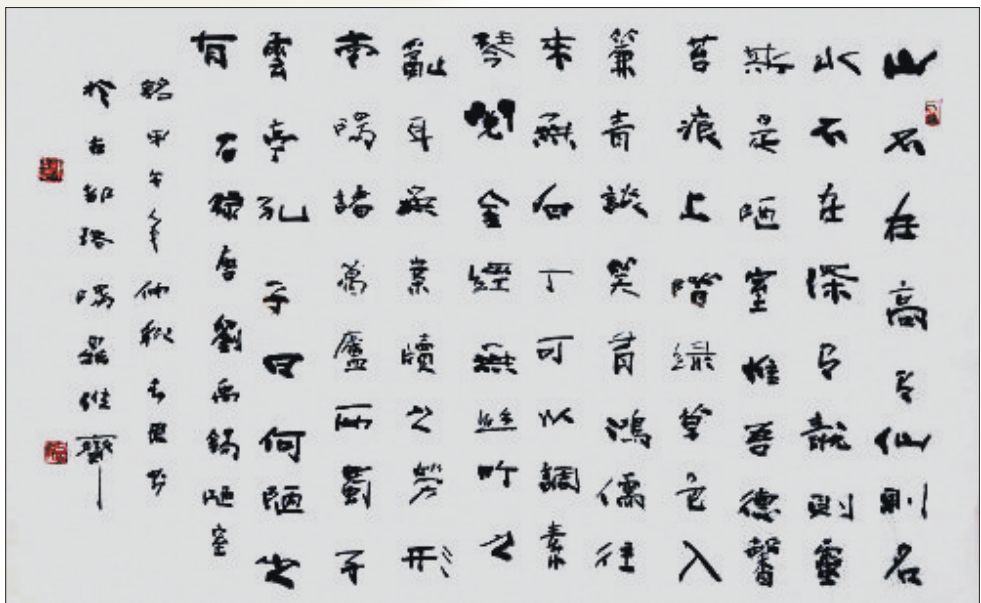 山不在高有仙則名
水不在深有龍則靈
斯是陋室惟吾德馨
苔痕上階綠草色入
簾青談笑有鴻儒往
來無白丁可以調素
琴閱金經無絲竹之
亂耳無案牘之勞形
南陽諸葛廬西蜀子
雲亭孔子曰何陋之
有右錄唐劉禹錫陋室
銘甲午年仲秋
於古都洛陽齋